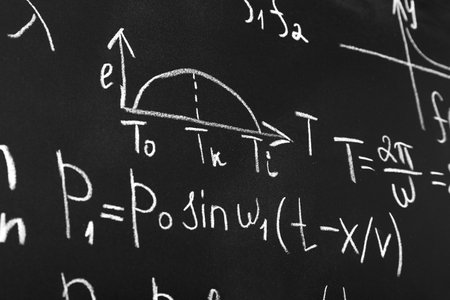 f₁f₂
y
e
T₀ Tₖ Tᵢ T
T=2π/ω=
P₁=P₀sinω₁(t-x/v)